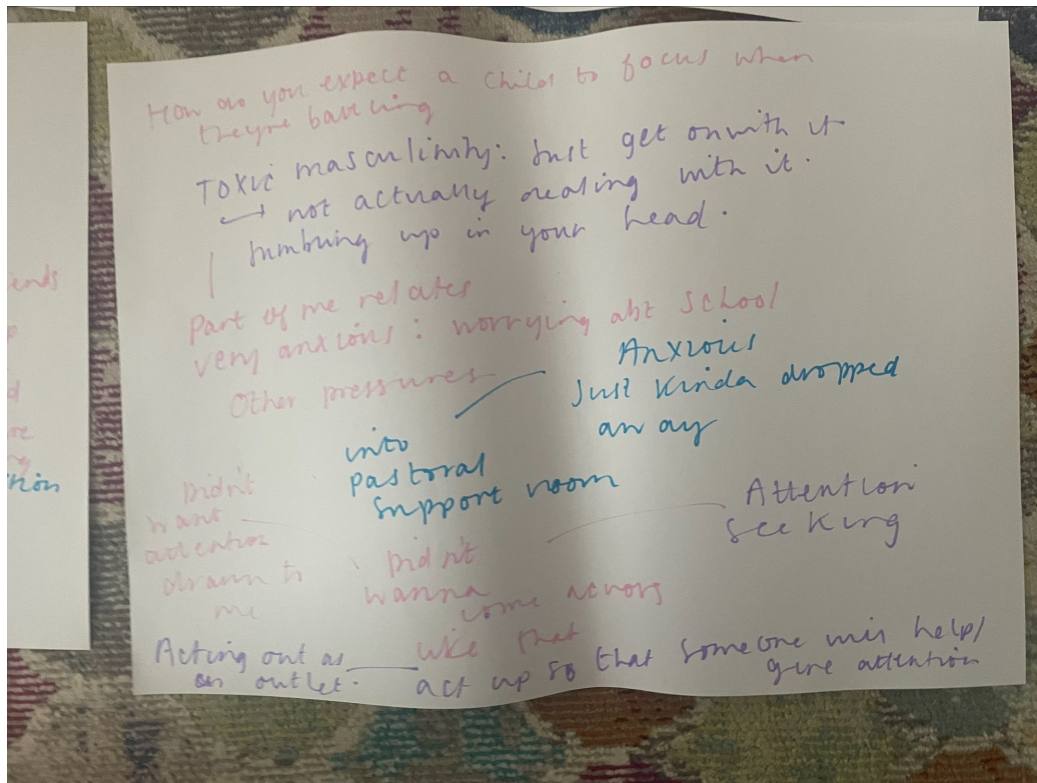 How do you expect a child to focus when
they're battling
Toxic masculinity: Just get on with it
not actually dealing with it.
up in your head.
Part of me relates
very anxious: worrying abt school
Other pressures
Anxious
Just kinda dropped
away
into
pastoral
support room
Didn't
want
attention
drawn to
me
Attention
seeking
Didn't
wanna
come across
like that
Acting out as
an outlet.
act up so that someone will help/
give attention
ends
tion